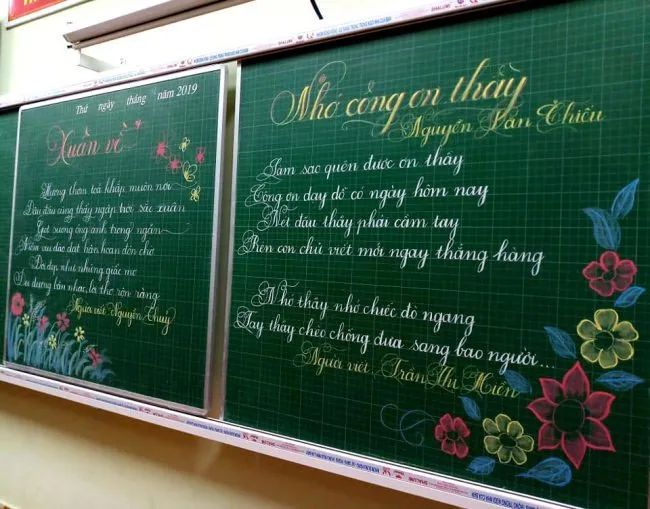 Thứ ngày tháng năm 2019
Xuân về
Hương thơm toả khắp muôn nơi
Đâu đâu cũng thấy ngập trời sắc xuân
Giọt sương óng ánh trong ngần
Niềm vui dào dạt hân hoan đón chờ
Đời đẹp như những giấc mơ
Du dương âm nhạc, lời thơ rộn ràng
Người viết: Nguyễn Thuỷ
Nhớ công ơn thầy
Nguyễn Văn Thiều
Làm sao quên được ơn thầy
Công ơn dạy dỗ có ngày hôm nay
Nét đầu thầy phải cầm tay
Rèn con chữ viết mới ngay thẳng hàng
Nhớ thầy nhớ chiếc đò ngang
Tay thầy chèo chống đưa sang bao người...
Người viết: Trần Thị Hiền